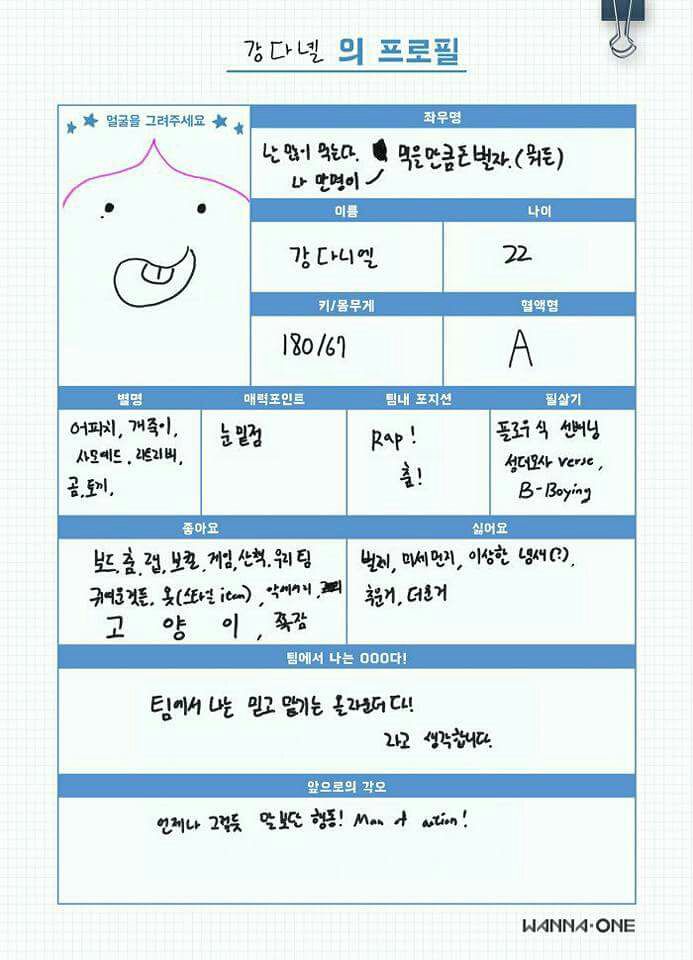 강다넬의 프로필
얼굴을 그려주세요
좌우명
난 많이 먹는다. 먹은만큼 돈 벌자. (뭐든)
나
이름
나이
강다니엘
22
키/몸무게
혈액형
180/67
A
별명
매력포인트
팀내 포지션
필살기
어피치, 개죽이,
사모예드, 리트리버,
곰, 토끼,
눈밑점
Rap!
춤!
플로우식 선버닝
성대모사 verse,
B-Boying
좋아요
싫어요
보드, 춤, 랩, 보컬, 게임, 산책, 우리팀
귀여운것들, 옷(스타일 item), 악세서리,
고양이, 쪽잠
벌레, 미세먼지, 이상한 냄새(?),
추운거, 더운거
팀에서 나는 OOO다!
팀에서 나는 믿고 맡기는 올라운더다!
라고 생각합니다.
앞으로의 각오
언제나 그렇듯 말보단 행동! Man of action!
WANNA·ONE